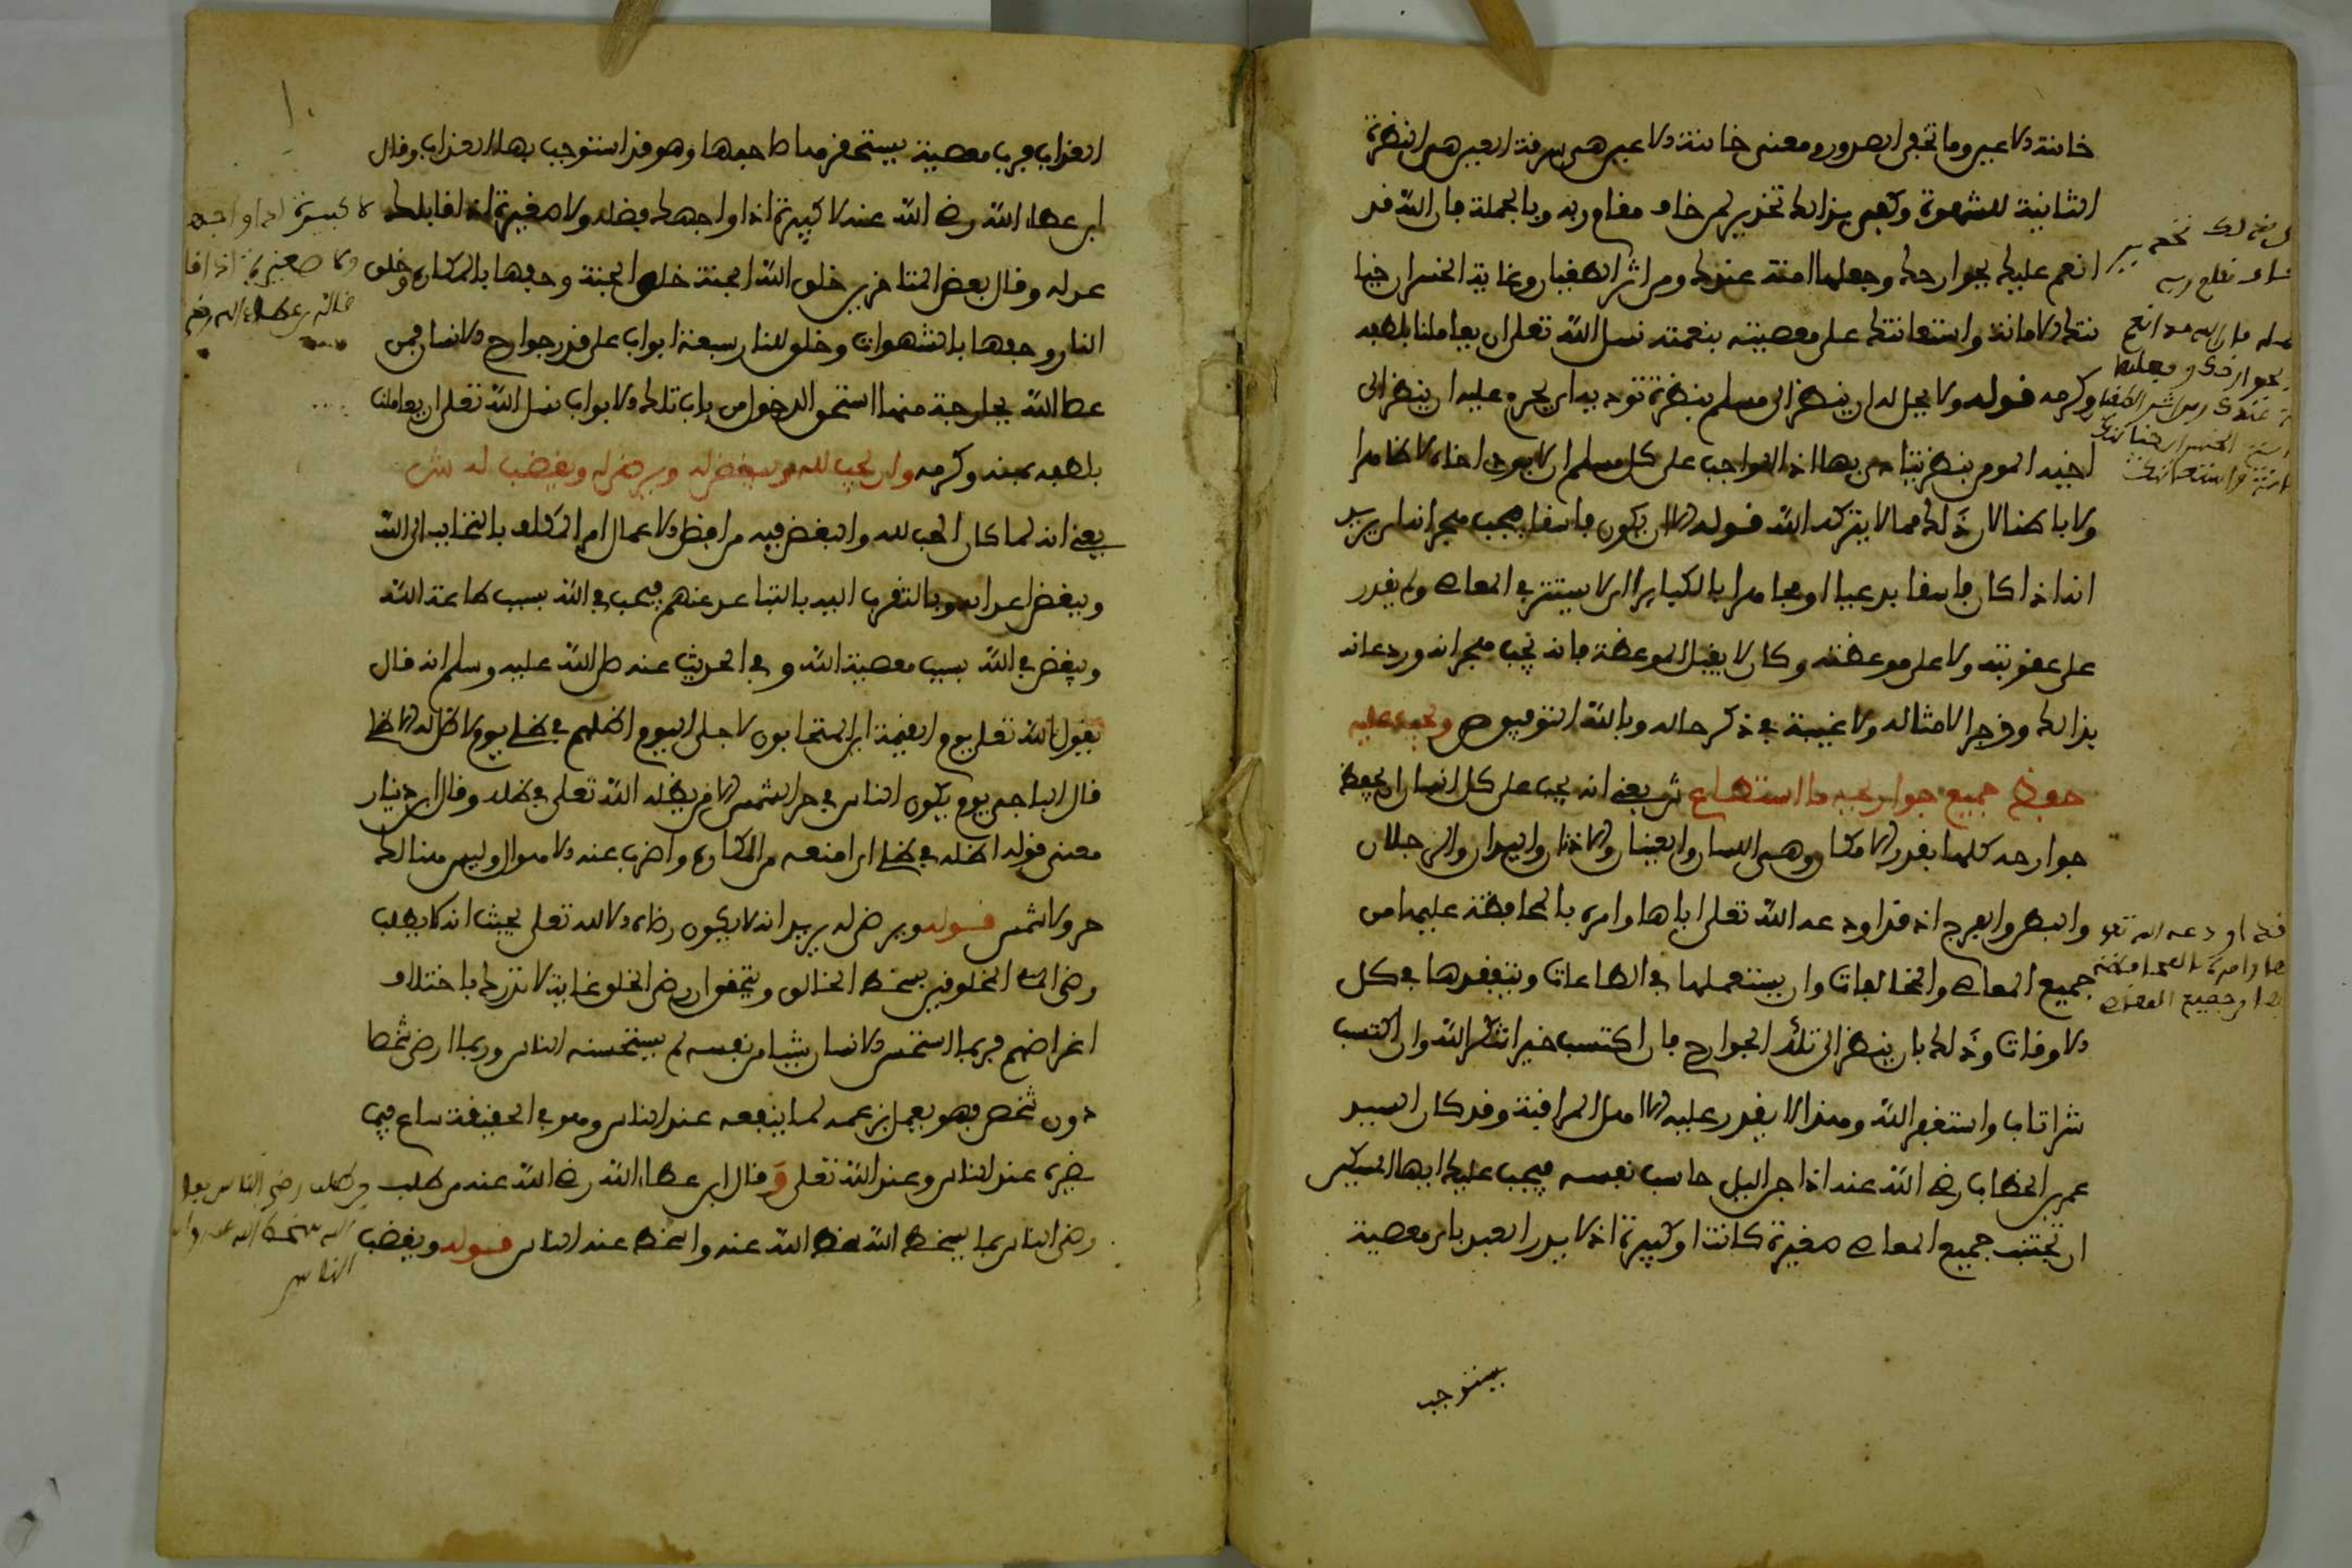 خائنة الاعين وما تخفي الصدور ومعنى خائنة الاعين هي سرقة العين هي النظرة
الثانية للشهوة وكفى بذالك تحذير لمن خاف مقام ربه وبالجملة فان الله قد
انعم عليك بجوارحك وجعلها امنة عندك ومن اشر الطغيان وغاية الخسران خيا
نتك الامانة واستعانتك على معصيته بنعمته نسل الله تعلى ان يعاملنا بلطفه
وكرمه قوله ولا يحل له ان ينظر الى مسلم بنظرة توذيه اي يحرم عليه ان ينظر الى
اخيه المومن بنظر يتاذى بها اذ الواجب على كل مسلم ان لا يوذي اخاه لا ظاهرا
ولا باطنا لان ذلك مما لا يتركه الله قوله الا ان يكون فاسقا فيجب هجرانه يريد
انه اذا كان فاسقا بدعيا او مجاهرا بالكباير اي لا يستتر في المعاصي ولم يقدر
على عقوبته ولا على موعظته وكان لا يقبل الموعظة فانه تجب هجرانه وردعانه
بذالك وزجرا لامثاله ولا غيبة في ذكر حاله وبالله التوفيق ص ويجب عليه
حفظ جميع جوارحه ما استطاع ش يعني انه يجب على كل انسان ان يحفظ
جوارحه كلها بقدر الامكان وهي اللسان والعينان والاذنان واليدان والرجلان
والبطن والفرج اذ قد اودعه الله تعلى اياها وامره بالمحافظة عليها من
جميع المعاصي والمخالفات وان يستعملها في الطاعات ويتفقدها في كل
الاوقات وذلك بان ينظر الى تلك الجوارح فان اكتسب خيرا شكر الله وان اكتسب
شرا تاب واستغفر الله وهذا لا يقدر عليه الا اهل المراقبة وقد كان السيد
عمر بن الخطاب رضي الله عنه اذا جن اليل حاسب نفسه فيجب عليك ايها المسكين
ان تجتنب جميع المعاصي صغيرة كانت او كبيرة اذ لا يدر العبد باي معصية
يستوجب
العذاب فرب معصية يستحقرها صاحبها وهو قد استوجب بها العذاب وقال
ابن عطاء الله رضي الله عنه لا كبيرة اذا واجهك فضله ولا صغيرة اذا قابلك
عدله وقال بعض المتاخرين خلق الله الجنة خلق الجنة وحفها بالمكاره وخلق
النار وحفها بالشهوات وخلق للنار سبعة ابواب على قدر جوارح الانسان فمن
عصا الله بجارحة منها استحق الدخول من باب تلك الابواب نسل الله تعلى ان يعاملنا
بلطفه بمنه وكرمه وان يحب لله ويبغض له ويرضى له ويغضب له ش
يعني انه لما كان الحب لله والبغض فيه من افضل الاعمال امر المكلف بالتحابب الى الله
وببغض اعدايه وبالتقرب اليه بالتباعد عنهم فيحب في الله بسبب طاعة الله
ويبغض في الله بسبب معصية الله وفي الحديث عنه صلى الله عليه وسلم انه قال
يقول الله تعلى يوم القيمة اين المتحابون لاجلي اليوم اظلهم في ظلي يوم لا ظل الا ظلي
قال الباجي يوم يكون الناس في حر الشمس الا من يظله الله تعلى في ظله وقال ابن دينار
معنى قوله اظله في ظلي اي امنعه من المكاره واصرف عنه الاهوال وليس هنالك
حر ولا شمس قوله ويرضى له يريد انه لا يكون رضاه الا لله تعلى بحيث انه لا يطلب
رضى المخلوقين بسخط الخالق ويتحقق ان رضى الخلق غاية لا تدرك باختلاف
اغراضهم فربما استحسن الانسان شيئا من نفسه لم يستحسنه الناس وربما ارضى شخصا
دون شخص فهو يعمل بزعمه لما ينفعه عند الناس وهو في الحقيقة ساع فيما
يضره عند الناس وعند الله تعلى وقال ابن عطاء الله رضي الله عنه من طلب
رضى الناس بما يسخط الله سخط الله عنه واسخط عنه الناس قوله ويغضب